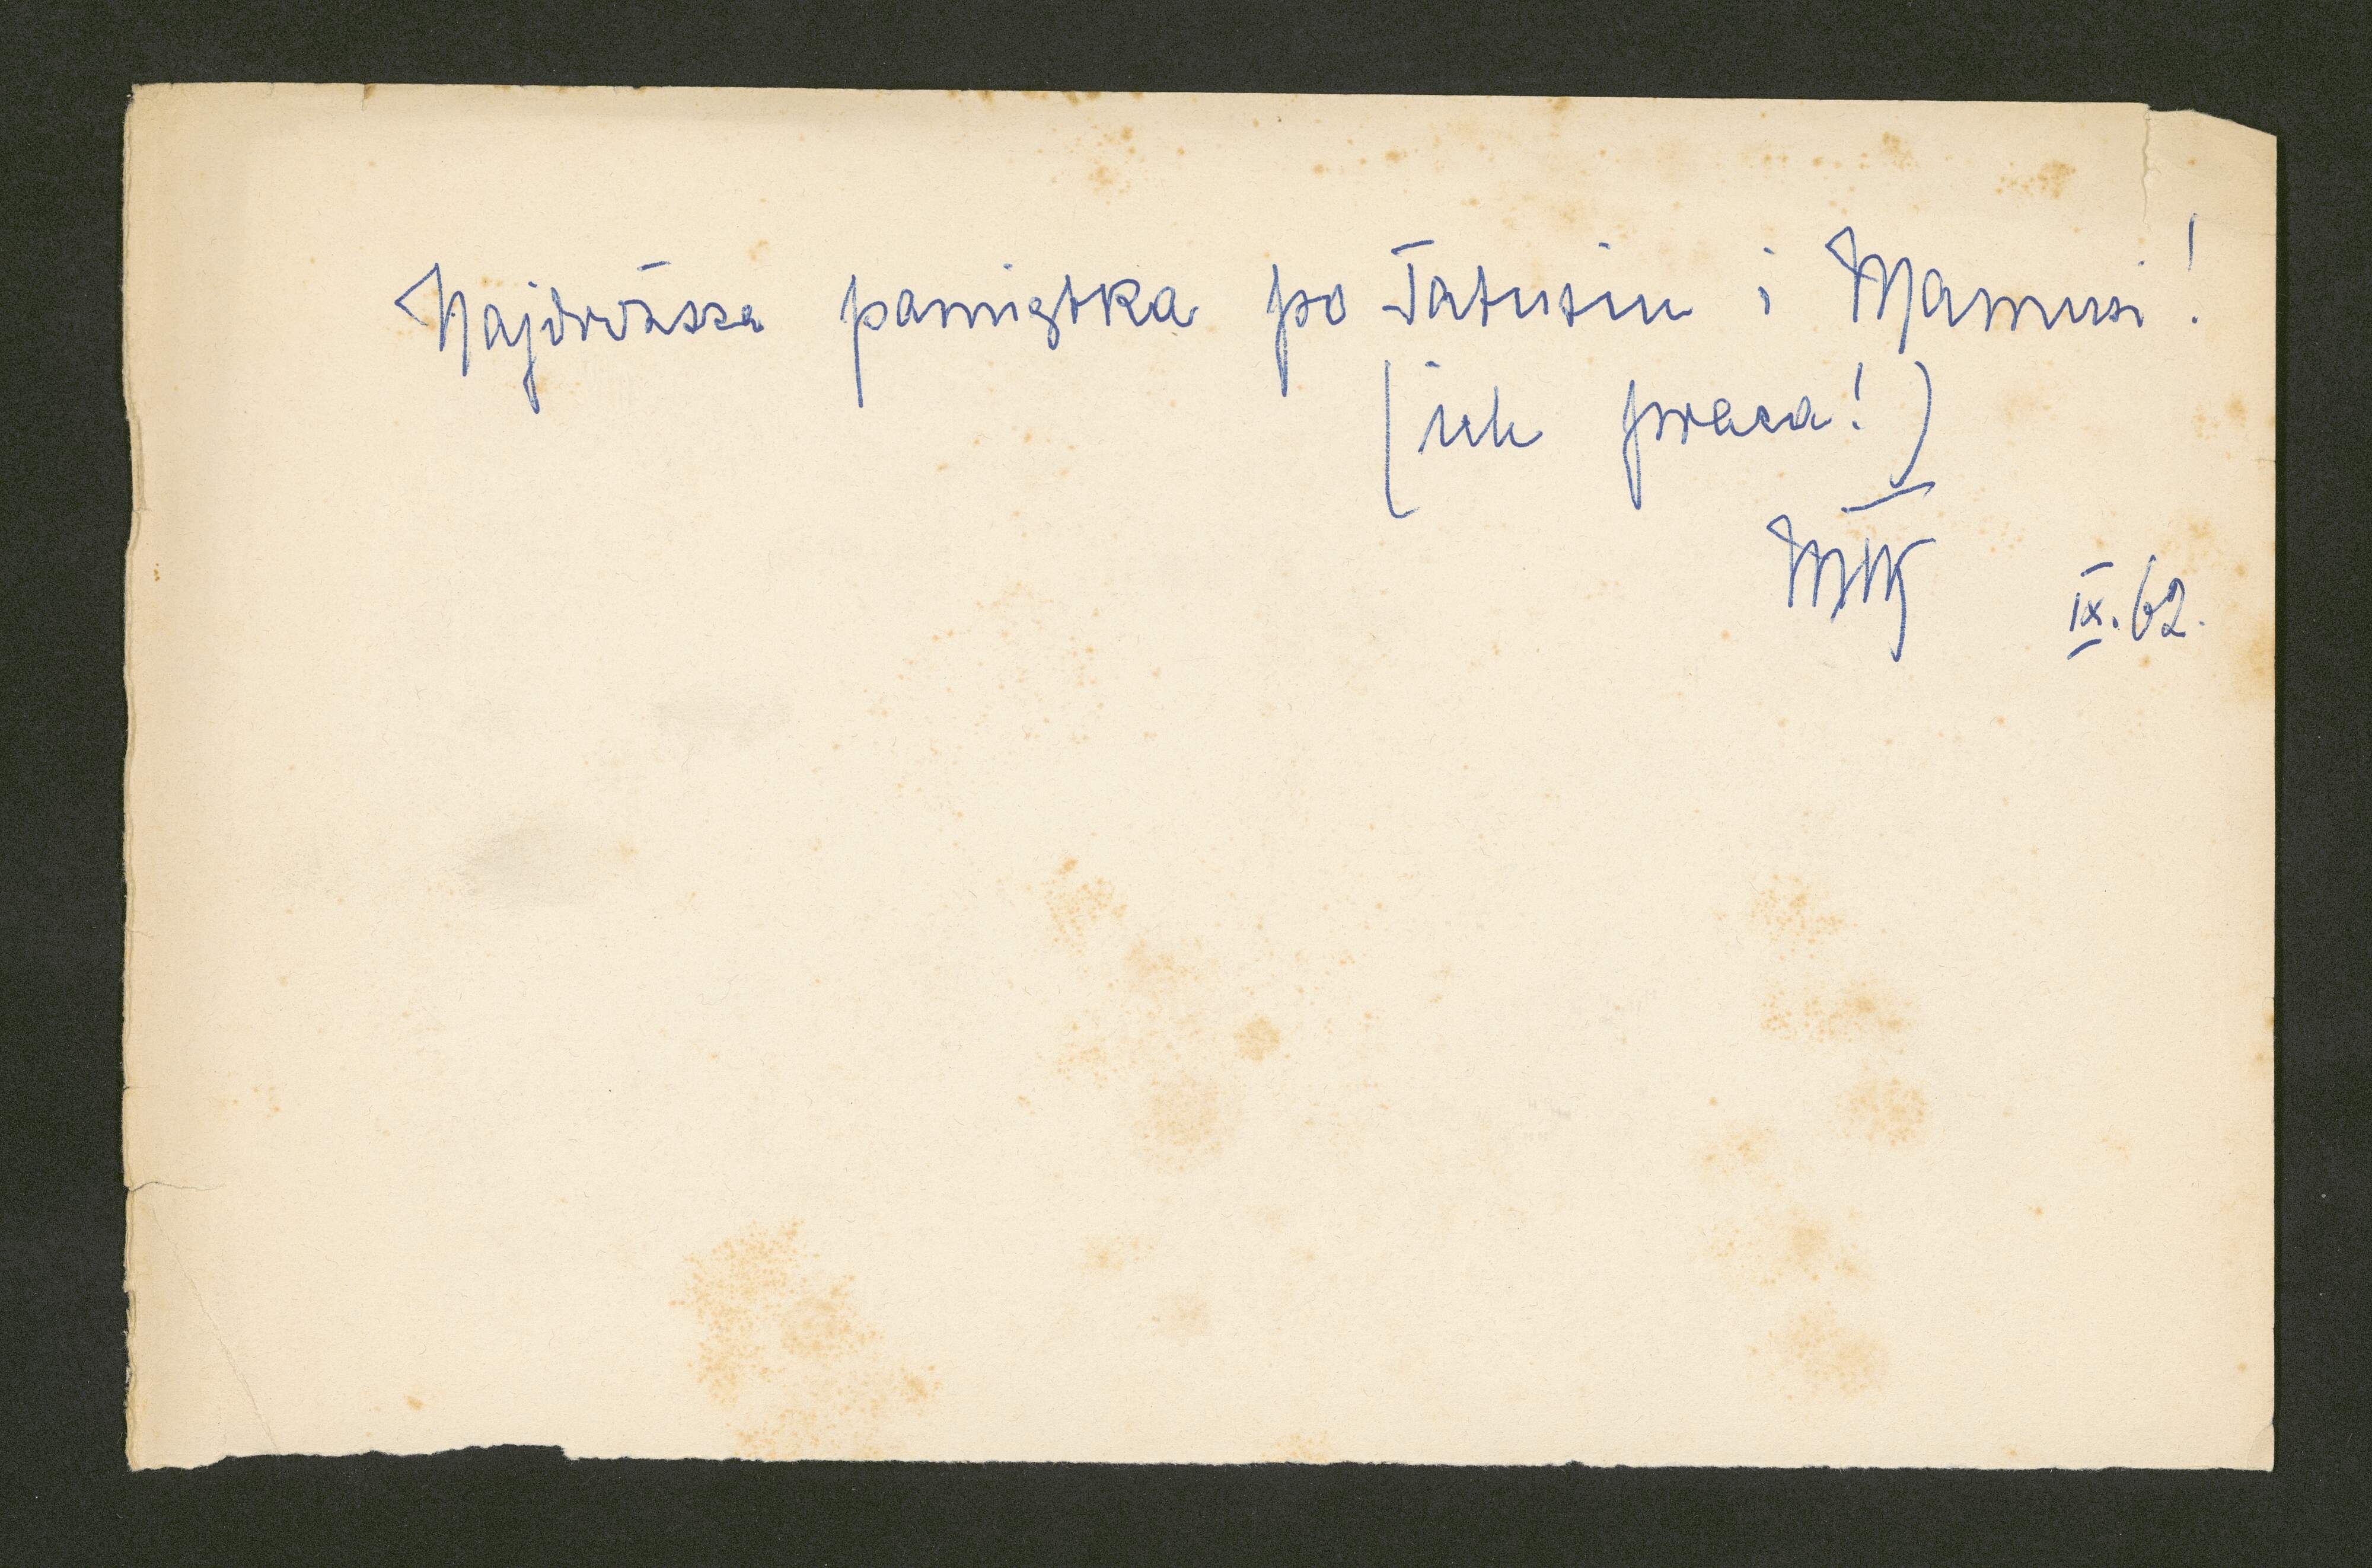 Najdroższa pamiątka po Tatusiu i Mamusi!
(ich praca!)
MK IX.62.